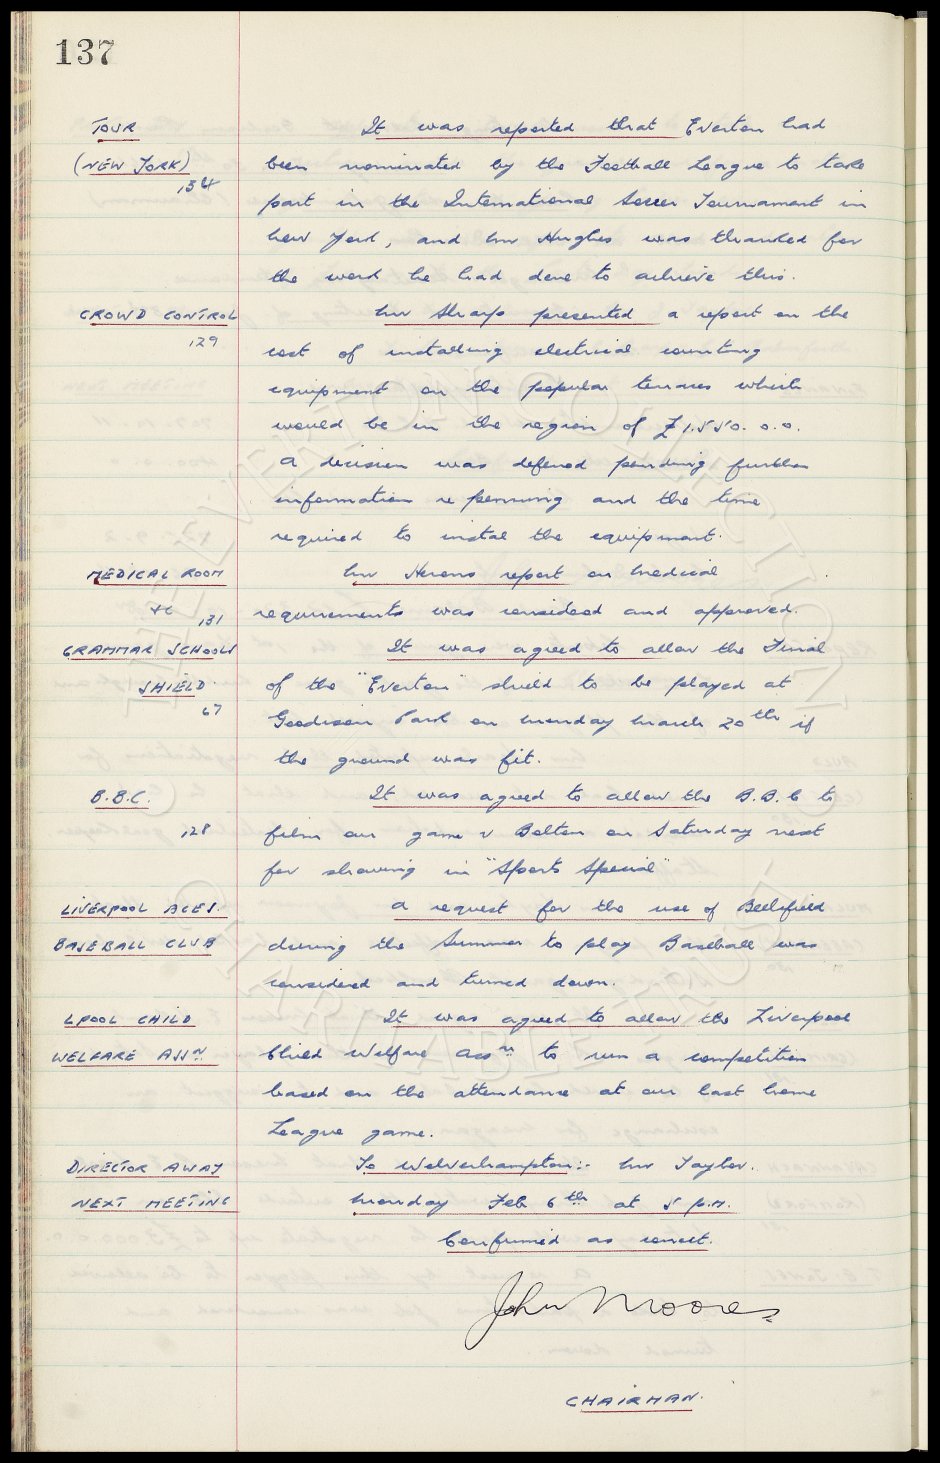 137
TOUR It was reported that Everton had
(NEW YORK) been nominated by the Football League to take
134 part in the International Soccer Tournament in
New York, and Mr Hughes was thanked for
the work he had done to achieve this.
CROWD CONTROL Mr Sharp presented a report on the
129 cost of installing electrical counting
equipment on the popular terraces which
would be in the region of £1.550. 0. 0.
A decision was deferred pending further
information re penning and the time
required to instal the equipment.
MEDICAL ROOM Mr Herons report on Medical
&c 131 requirements was considered and approved.
GRAMMAR SCHOOLS It was agreed to allow the Final
SHIELD of the "Everton" shield to be played at
67 Goodison Park on Monday March 20th if
the ground was fit.
B.B.C. It was agreed to allow the B.B.C to
128 film our game v Bolton on Saturday next
for showing in "Sports Special"
LIVERPOOL ACES A request for the use of Bellefield
BASEBALL CLUB during the Summer to play Baseball was
considered and turned down.
LPOOL CHILD It was agreed to allow the Liverpool
WELFARE ASSN Child Welfare Assn to run a competition
based on the attendance at our last home
League game.
DIRECTOR AWAY To Wolverhampton:- Mr Taylor.
NEXT MEETING Monday Feb 6th at 5 p.m.
Confirmed as correct.
John Moores
CHAIRMAN.